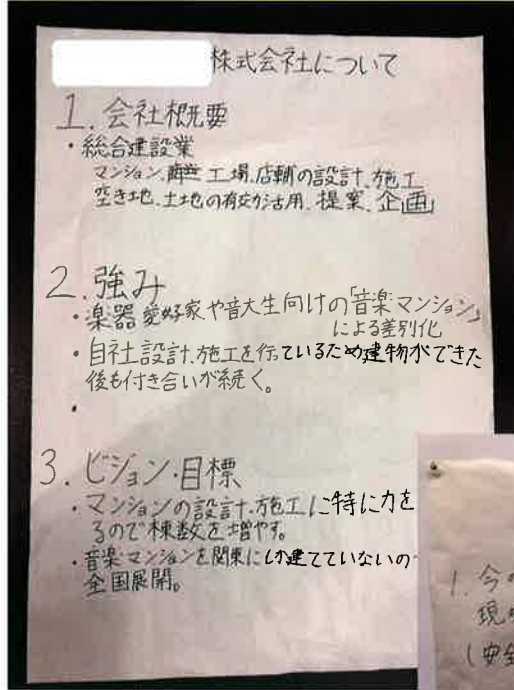 株式会社について
1. 会社概要
・総合建設業
マンション、工場、店舗の設計、施工
空き地、土地の有効活用、提案、企画
2. 強み
・楽器愛好家や音大生向けの「音楽マンション」
による差別化
・自社設計、施工を行っているため建物ができた
後も付き合いが続く。
・
3. ビジョン・目標
・マンションの設計、施工に特に力を
るので棟数を増やす。
・音楽マンションを関東にしか建てていないの
全国展開。
1. 今の
現
(安全